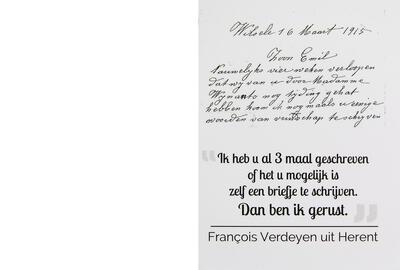 Wilsele 16 Maart 1915
Zoon Emil
Nauwelyks vier weken verloopen
dat wy van u door Madamme
Wynants nog tyding gehat
hebben kom ik nog maals u eenige
woorden van vrintschap te schryven
"Ik heb u al 3 maal geschreven
of het u mogelijk is
zelf een briefje te schrijven.
Dan ben ik gerust."
François Verdeyen uit Herent